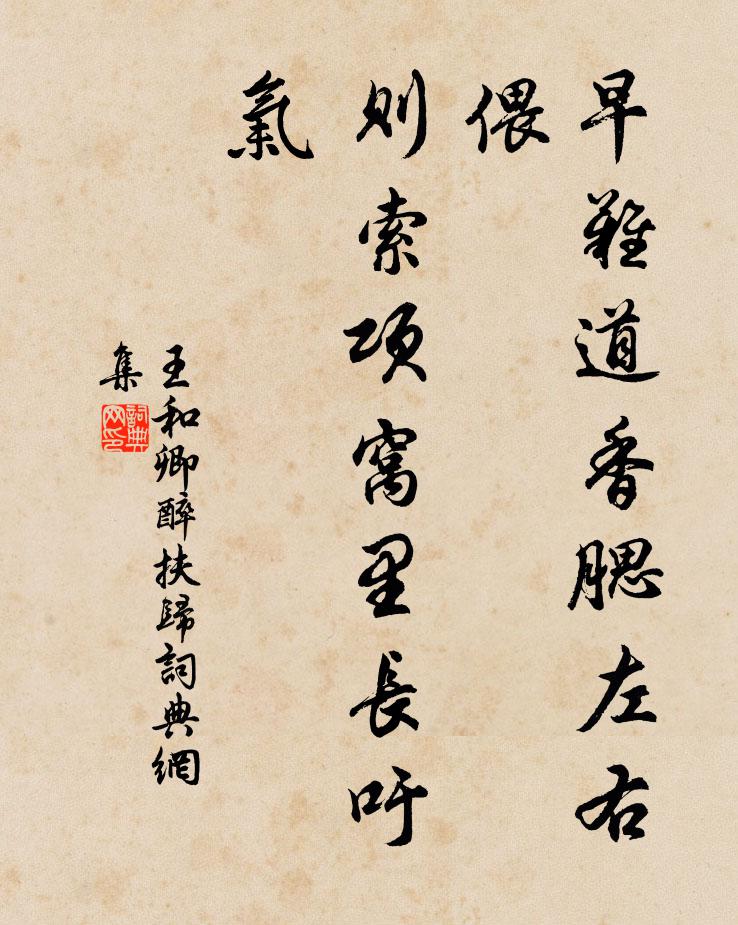 早難道香腮左右
偎
則索項窩里長吁
氣
王和卿醉扶歸詞典網
集
詞典
网印